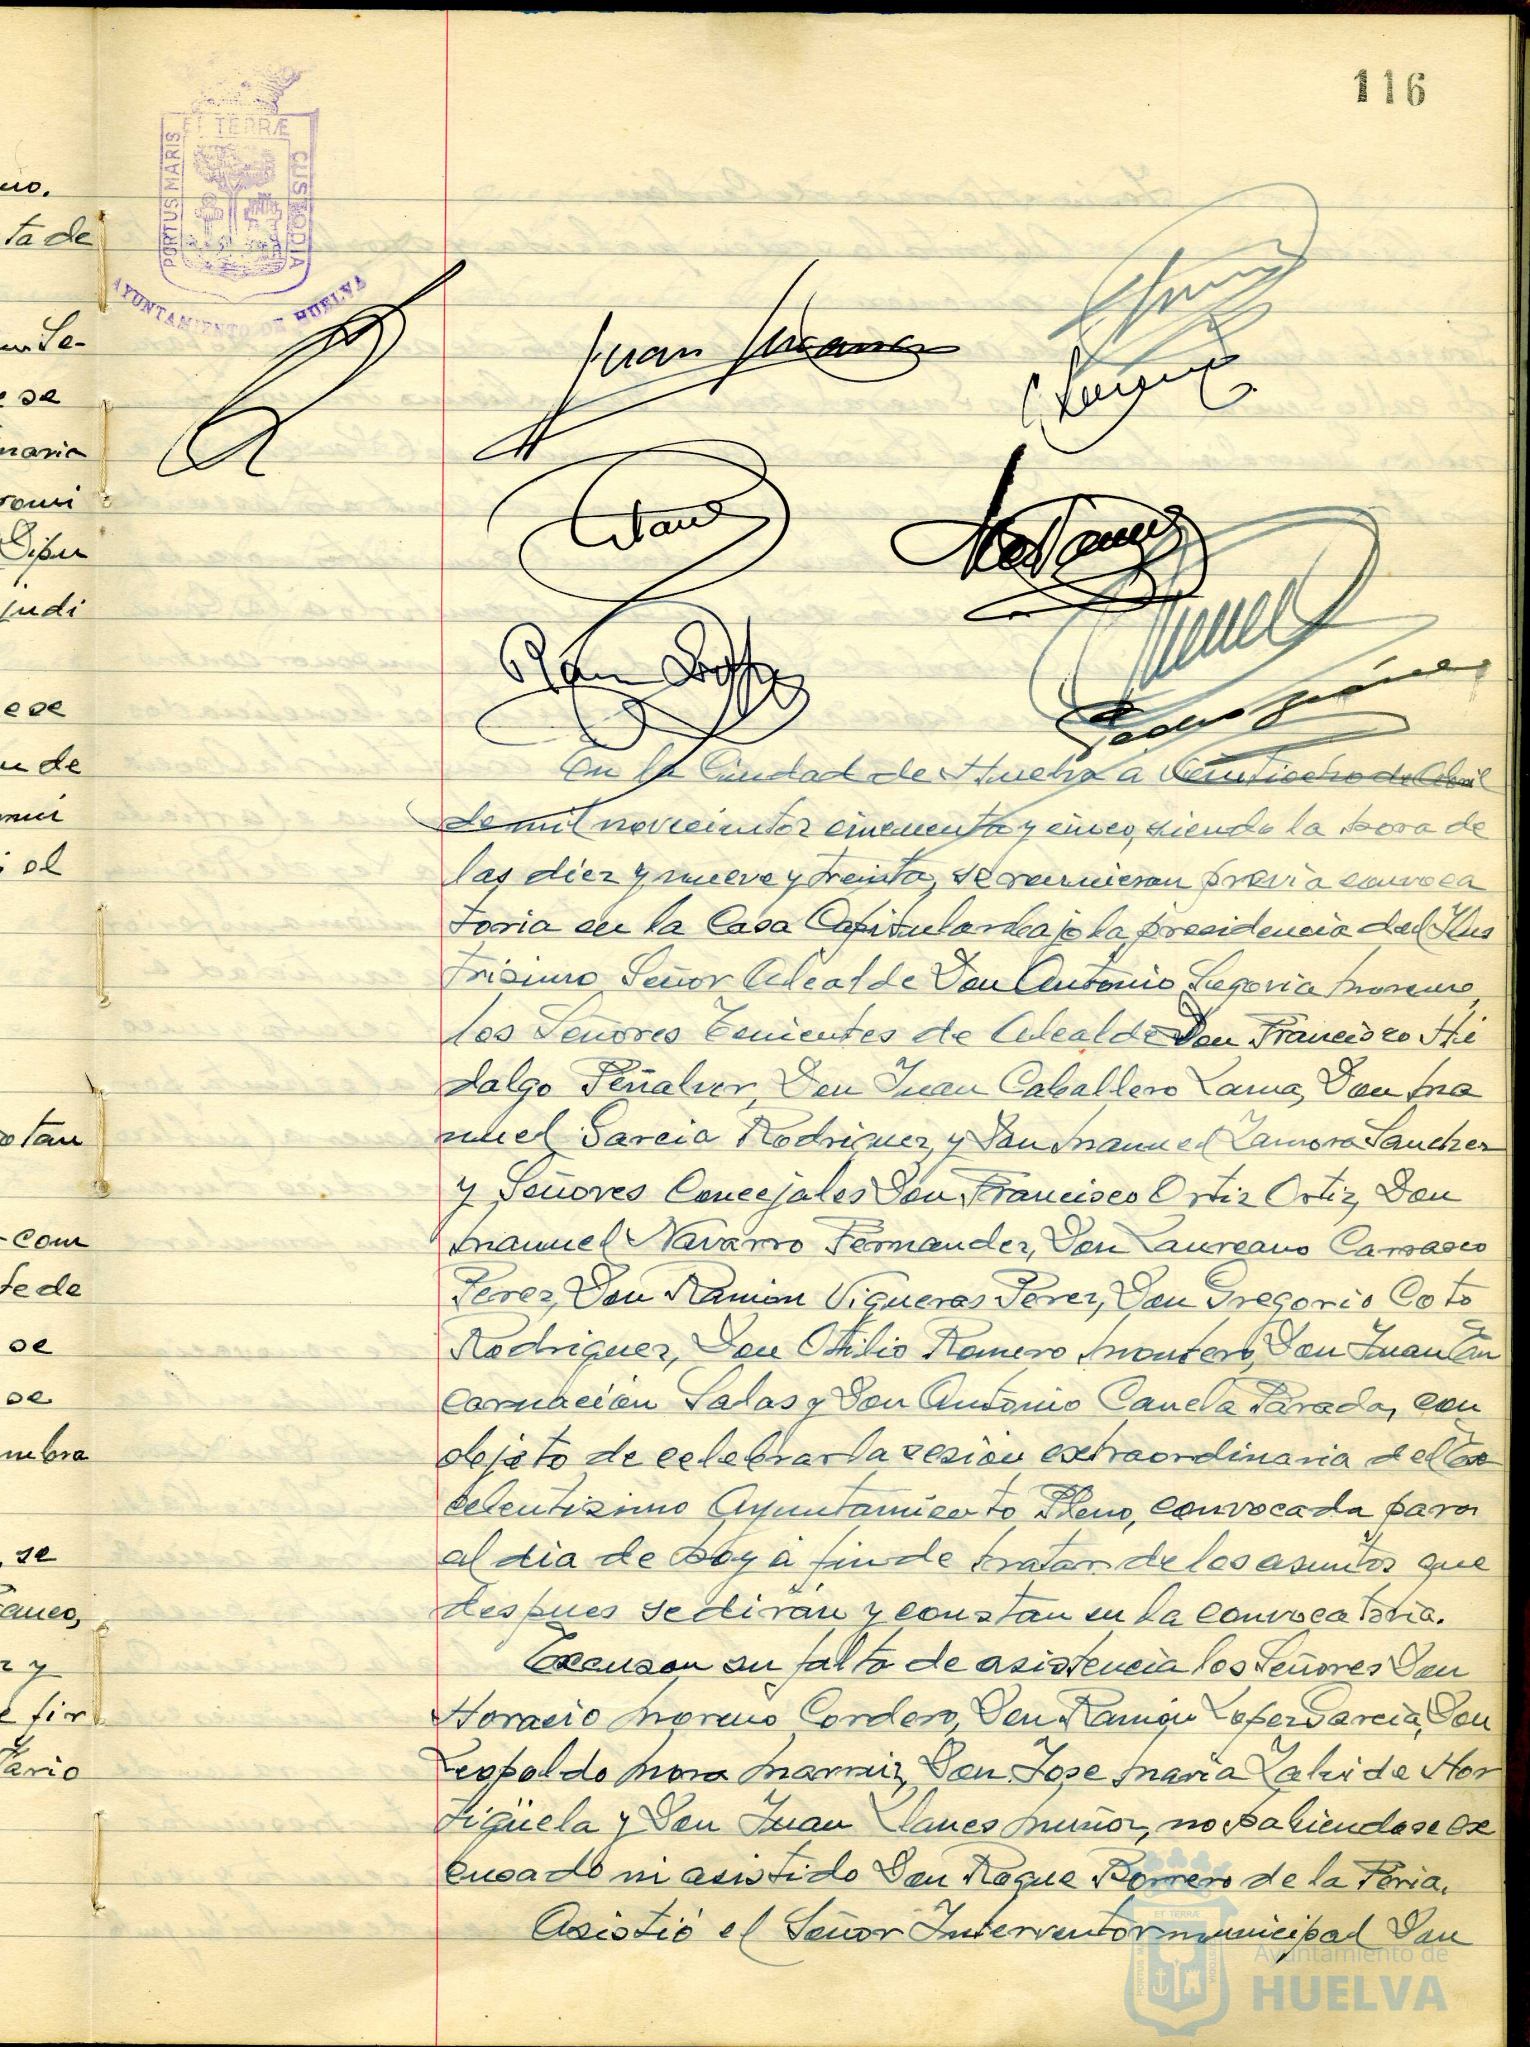 116
ET TERRÆ
PORTUS MARIS
CUSTODIA
AYUNTAMIENTO DE HUELVA
no.
ta de
Se-
e se
naria
Dipu
judi
ese
u de
i el
otan
-com
te de
se
se
mbra
, se
anco,
z y
e fir
tario
Juan
Pedro
En la Ciudad de Huelva a Veintiocho de Abril
de mil novecientos cincuenta y cinco, siendo la hora de
las diez y nueve y treinta, se reunieron previa convoca
toria en la Casa Capitular bajo la presidencia del Ilus
trisimo Señor Alcalde Don Antonio Segovia Moreno,
los Señores Tenientes de Alcalde Don Francisco Hi
dalgo Peñalver, Don Juan Caballero Lama, Don Ma
nuel Garcia Rodriguez, y Don Manuel Zamora Sanchez
y Señores Concejales Don Francisco Ortiz Ortiz, Don
Manuel Navarro Fernandez, Don Laureano Carrasco
Perez, Don Ramon Vigueras Perez, Don Gregorio Coto
Rodriguez, Don Otilio Romero Montero, Don Juan En
carnación Salas y Don Antonio Canela Parada, con
objeto de celebrar la sesión extraordinaria del Ex
celentisimo Ayuntamiento Pleno, convocada para
el dia de hoy a fin de tratar de los asuntos que
despues se dirán y constan en la convocatoria.
Excusan su falta de asistencia los Señores Don
Horacio Moreno Cordero, Don Ramón Lopez Garcia, Don
Leopoldo Mora Don Jose Maria de Hor
tigüela y Don Juan Llanes Muñoz, no habiendose ex
cusado ni asistido Don Roque Borrero de la Feria.
Asistió el Señor Interventor municipal Don
Ayuntamiento de
HUELVA